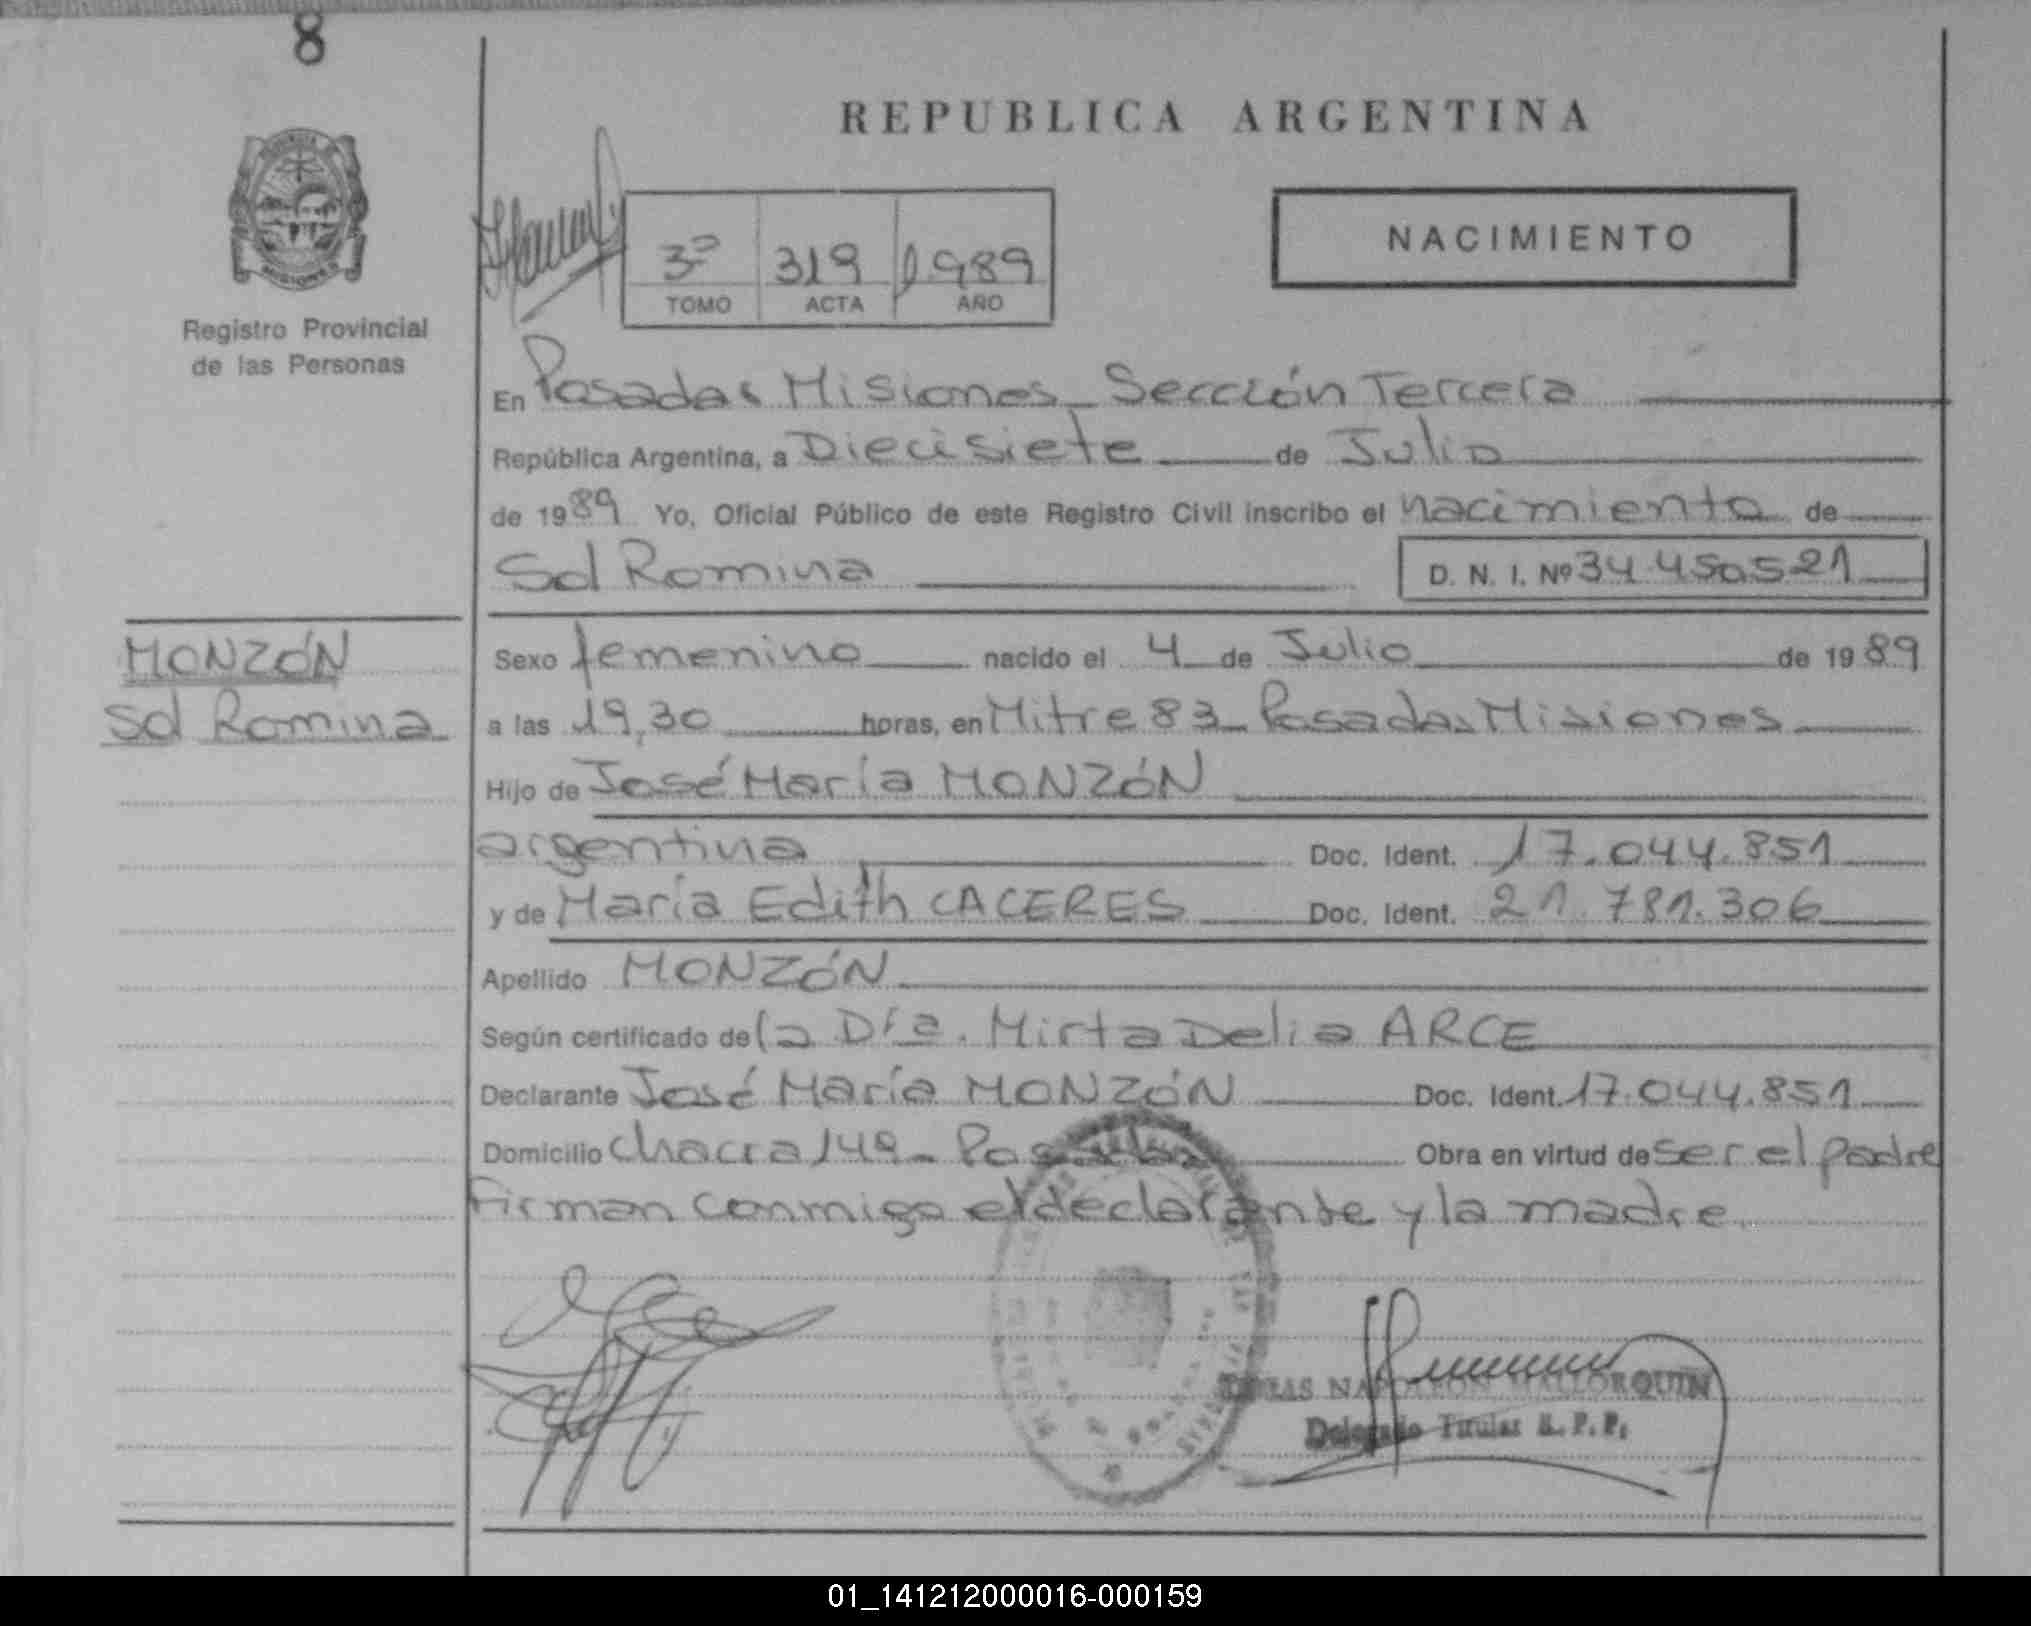 8
REPUBLICA ARGENTINA
NACIMIENTO
3º 319 1989
TOMO ACTA AÑO
Registro Provincial
de las Personas
En Posadas Misiones - Sección Tercera
República Argentina, a Diecisiete de Julio
de 1989 Yo, Oficial Público de este Registro Civil inscribo el nacimiento de
Sol Romina
D. N. I. Nº 34.450.521
MONZÓN
Sol Romina
Sexo femenino nacido el 4 de Julio de 1989
a las 19,30 horas, en Mitre 83 - Posadas Misiones
Hijo de José María MONZÓN
argentina Doc. Ident. 17.044.851
y de María Edith CACERES Doc. Ident. 21.781.306
Apellido MONZÓN
Según certificado de la Dra. Mirta Delia ARCE
Declarante José María MONZÓN Doc. Ident. 17.044.851
Domicilio Chacra 149 - Posadas Obra en virtud de ser el padre
Firman conmigo el declarante y la madre
NAPOLEON MALLORQUIN
Delegado Titular R. P. P.
01_141212000016-000159